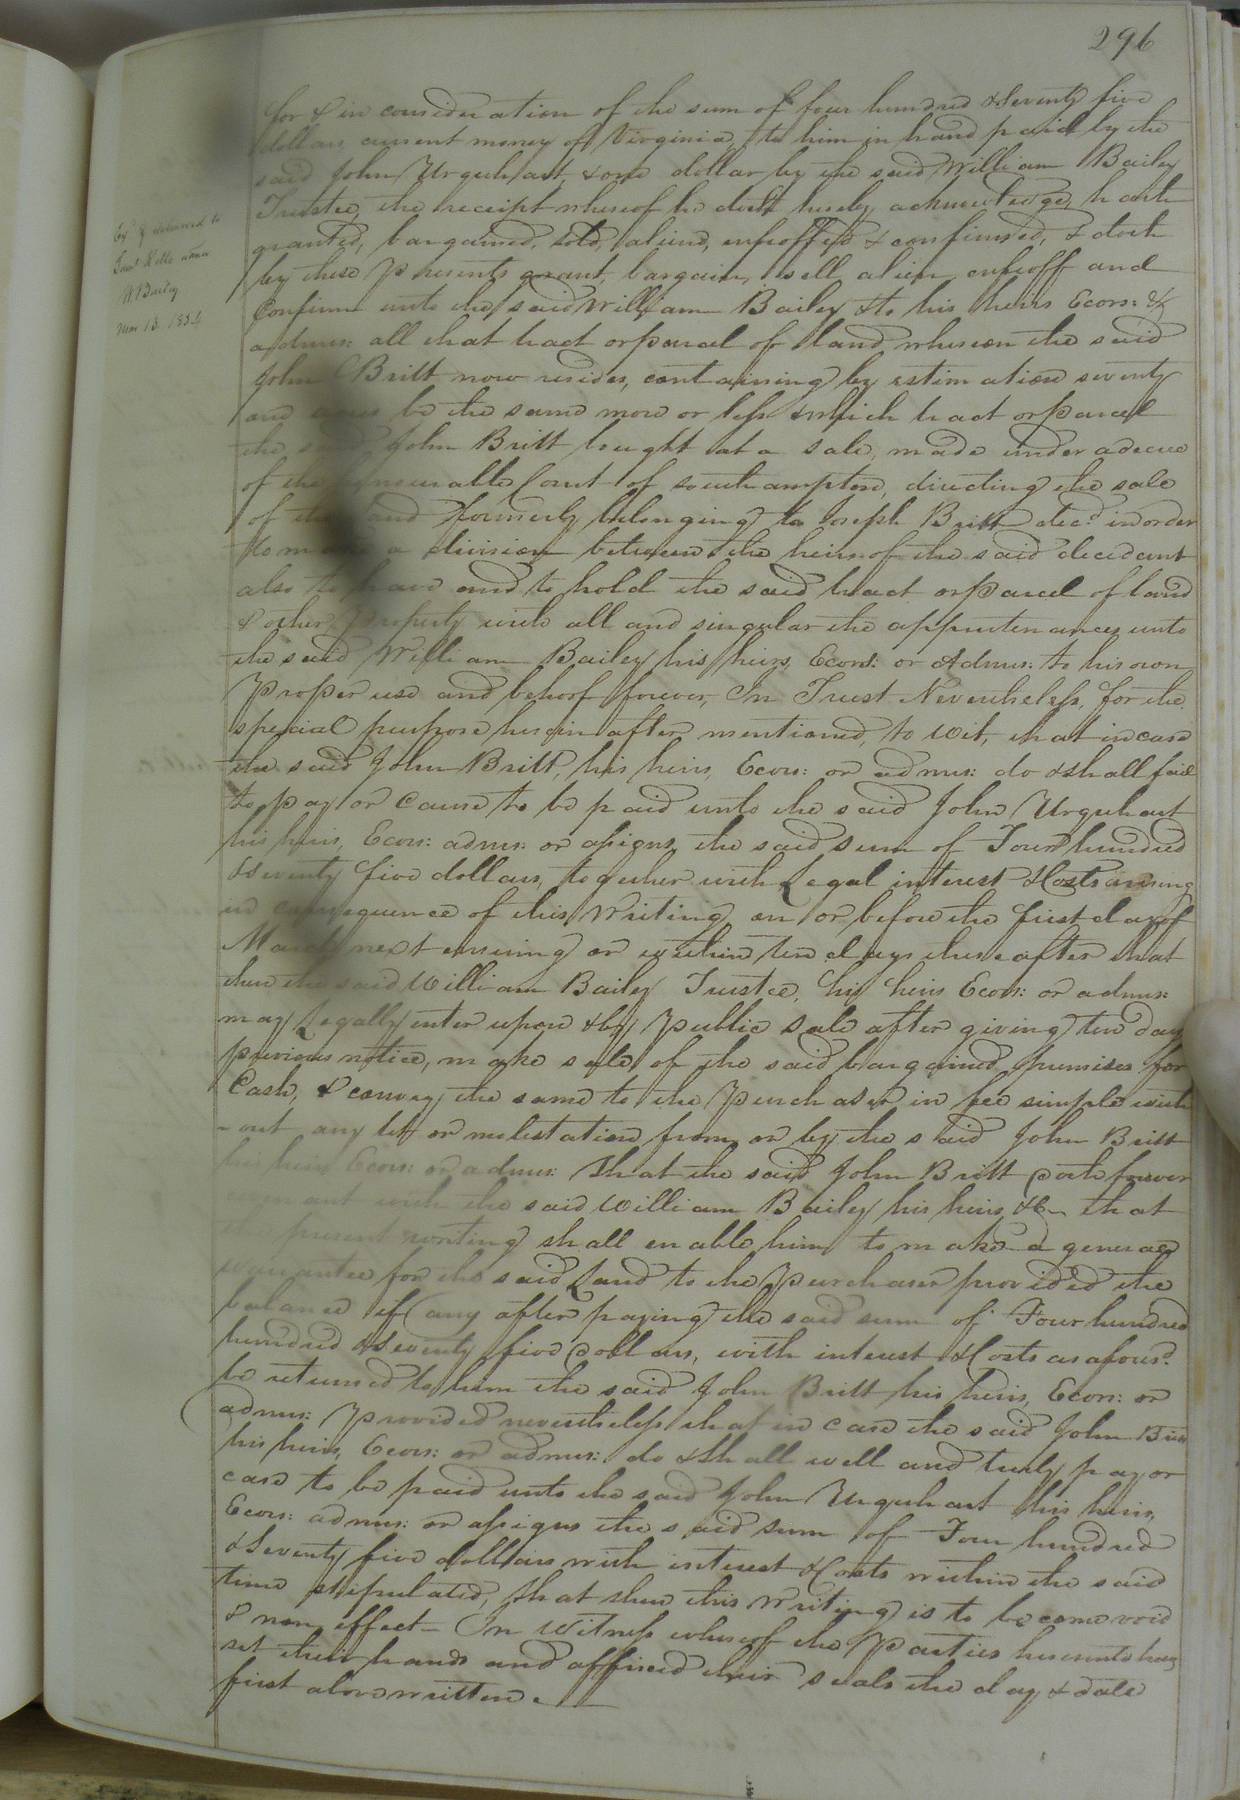 296
for & in consideration of the sum of four hundred & Seventy five
dollars current money of Virginia, to him in hand paid by the
said John Urquhart, & one dollar by the said William Bailey
Trustee, the receipt whereof he doth hereby acknowledge, hath
granted, bargained, sold, aliend, enfeoffed & confirmed, & doth
by these Presents grant, bargain, sell, alien, enfeoff and
Confirm unto the said William Bailey & to his heirs Ecors: &
admrs: all that tract or parcel of land whereon the said
John Britt now resides, containing by estimation seventy
acres be the same more or less & which tract or parcel
the John Britt bought at a sale, made under a decree
of the honourable Court of Southampton, directing the sale
of the land formerly belonging to Joseph Britt decd. in order
to make a division between the heirs of the said decedant
also to have and to hold the said tract or parcel of land
& other Property with all and singular the appurtenances unto
the said William Bailey his heirs, Ecors: or Admrs: to his own
Proper use and behoof forever, In Trust Nevertheless, for the
special purpose herein after mentioned, to wit, that in case
the said John Britt, his heirs, Ecors: or admrs: do & shall fail
to pay or cause to be paid unto the said John Urquhart
his heirs, Ecors: admrs: or assigns, the said sum of Four hundred
& Seventy five dollars, together with Legal interest & Costs arising
in consequence of this Writing on or before the first day of
March next ensuing or within ten days thereafter that
then the said William Bailey Trustee, his heirs Ecors: or admrs:
may Legally enter upon & by Public Sale after giving ten days
previous notice, make sale of the said bargained premises for
Cash, & convey the same to the Purchaser in fee simple with
-out any let or molestation from or by the said John Britt
his heirs Ecors: or admrs: that the said John Britt doth forever
covenant with the said William Bailey his heirs &c- that
this present writing shall enable him to make a general
warrantee for the said Land to the Purchaser provided the
balance if any after paying the said sum of Four hundred
hundred & Seventy five dollars, with interest & Costs as afores.d
be returned to him the said John Britt his heirs, Ecors: or
admrs: Provided nevertheless that in case the said John Britt
his heirs, Ecors: or admrs: do & shall well and truly pay or
case to be paid unto the said John Urquhart his heirs,
Ecors: admrs: or assigns the said sum of Four hundred
& Seventy five dollars with interest & Costs within the said
time stipulated, that then this Writing is to become void
& non effect- In Witness whereof the Parties hereunto have
set their hands and affixed their seals the day & date
first above written.
delivered to
Bailey
1834